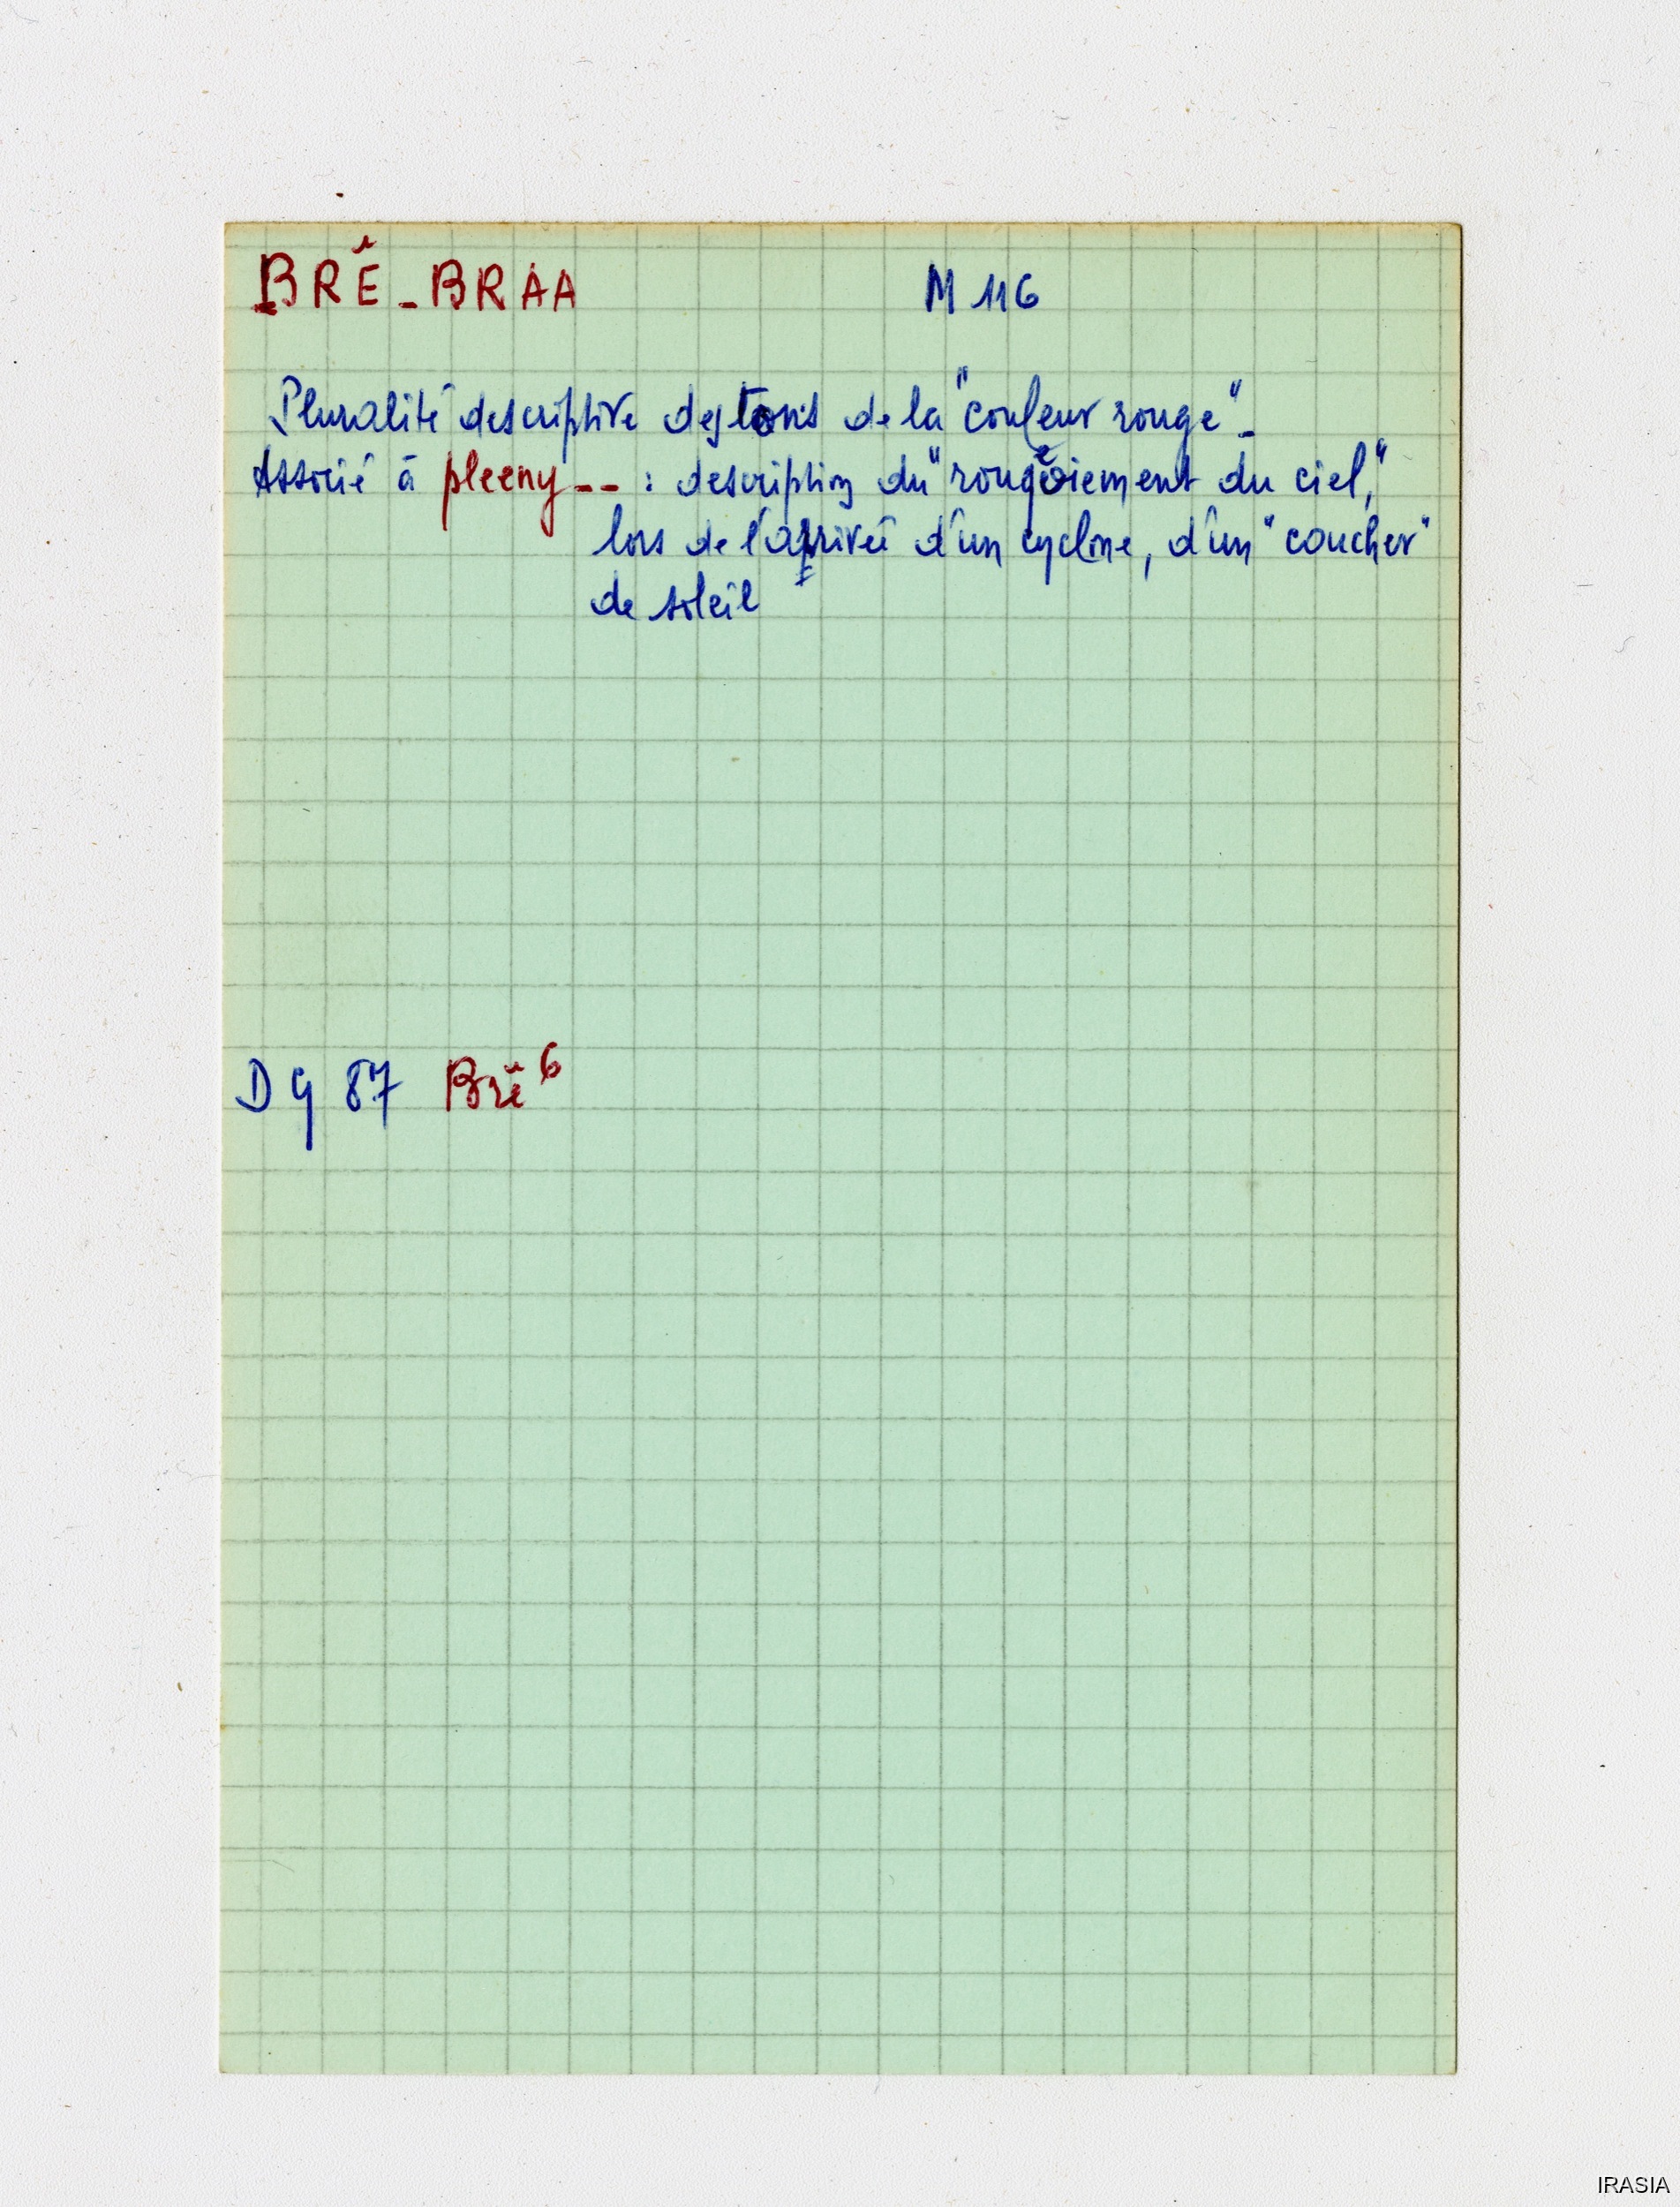 BRĔ_BRAA M 116
Pluralité descriptive des tons de la "couleur rouge"_
Associé à pleeny _ _ : description du "rougeoiement du ciel,"
lors de l'arrivée d'un cyclone, d'un "coucher"
de soleil
DG 87 Brĕ 6
IRASIA